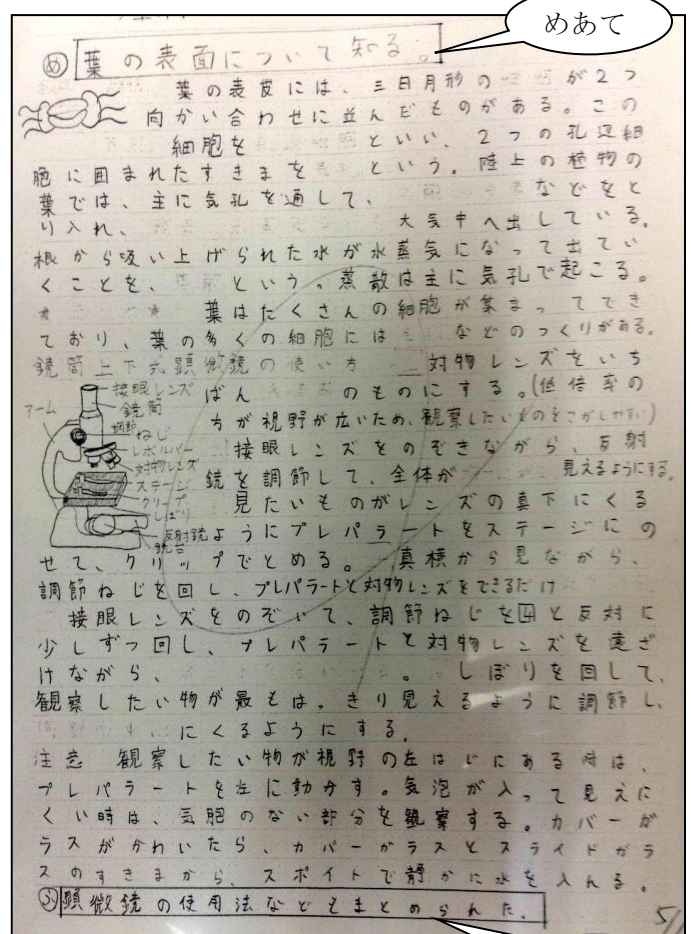 めあて
め 葉の表面について知る。
葉の表皮には、三日月形の が2つ
向かい合わせに並んだものがある。この
細胞を といい、2つの孔辺細
胞に囲まれたすきまを という。陸上の植物の
葉では、主に気孔を通して、 などをと
り入れ、 大気中へ出している。
根から吸い上げられた水が水蒸気になって出てい
くことを、 という。蒸散は主に気孔で起こる。
葉はたくさんの細胞が集まってでき
ており、葉の多くの細胞には などのつくりがある。
鏡筒上下式顕微鏡の使い方 対物レンズをいち
ばん のものにする。(低倍率の
方が視野が広いため、観察したいものをさがしやすい)
接眼レンズをのぞきながら、反射
鏡を調節して、全体が 見えるようにする。
見たいものがレンズの真下にくる
ようにプレパラートをステージにの
せて、クリップでとめる。 真横から見ながら、
調節ねじを回し、プレパラートと対物レンズをできるだけ
接眼レンズをのぞいて、調節ねじを四と反対に
少しずつ回し、プレパラートと対物レンズを遠ざ
けながら、 。 しぼりを回して、
観察したい物が最もはっきり見えるように調節し、
にくるようにする。
注意 観察したい物が視野の左はじにある時は、
プレパラートを左に動かす。気泡が入って見えに
くい時は、気胞のない部分を観察する。カバーガ
ラスがかわいたら、カバーガラスとスライドガラ
スのすきまから、スポイトで静かに水を入れる。
ふ 顕微鏡の使用法などをまとめられた。
アーム
接眼レンズ
鏡筒
調節ねじ
レボルバー
対物レンズ
ステージ
クリップ
しぼり
反射鏡
鏡台
5/